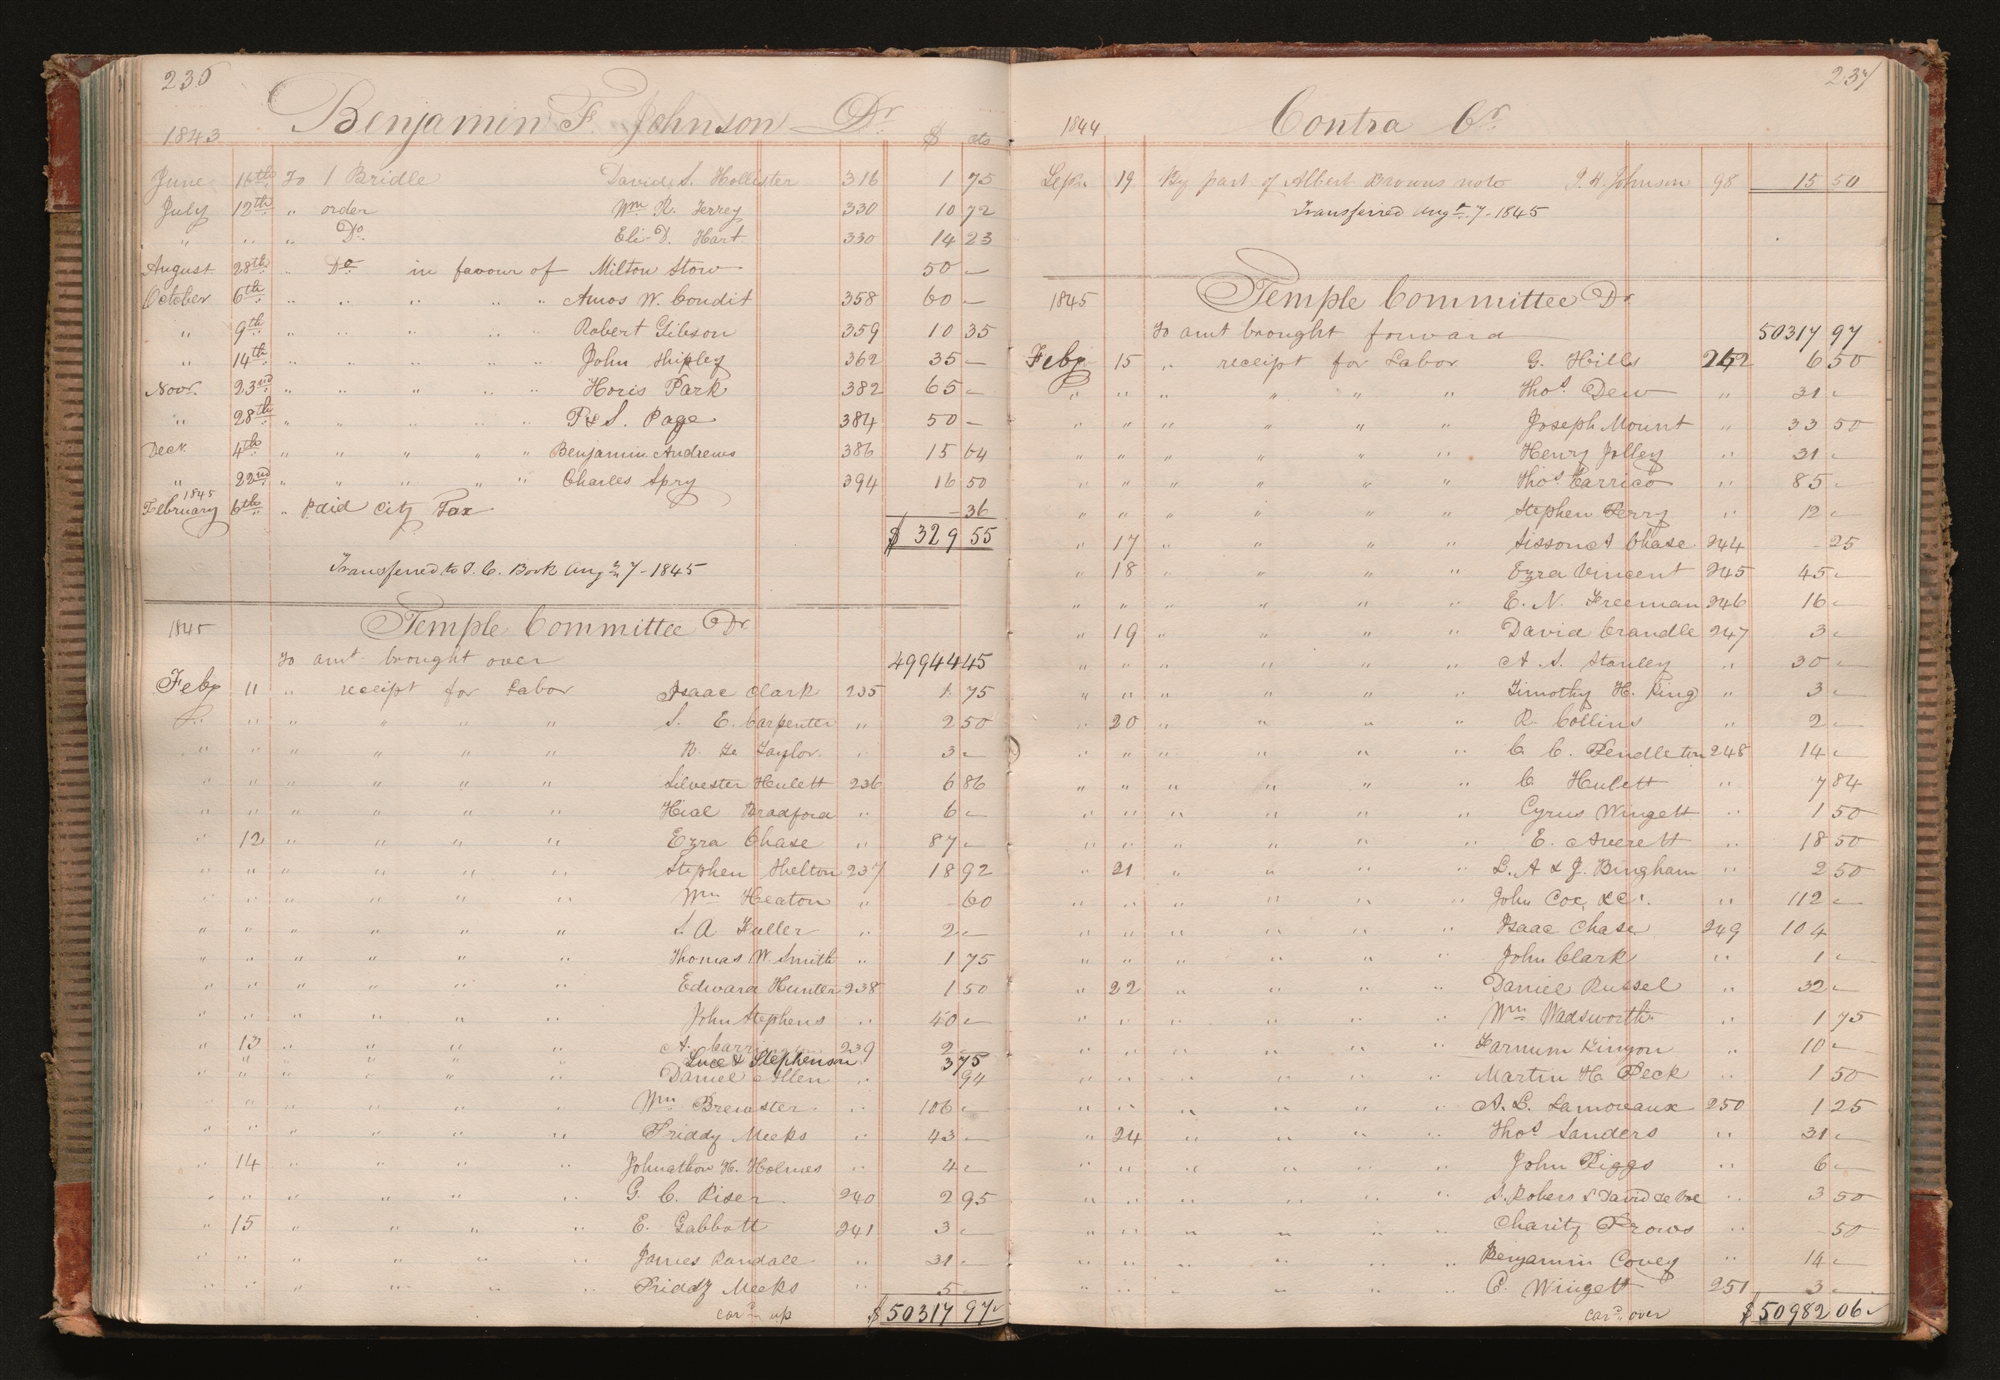 236
Benjamin F. Johnson Dr.
1843 $ cts
June 16th To 1 Bridle David S. Hollister 316 1 75
July 12th " order Wm. R. Terrey 330 10 72
" " " Do. Eli D. Hart 330 14 23
August 28th " Do. in favour of Milton Stow 50 –
October 6th " " " " " Amos W. Condit 358 60 –
" 9th " " " " " Robert Gibson 359 10 35
" 14th " " " " " John Shipley 362 35 –
Novr. 23rd " " " " " Horis Park 382 65 –
" 28th " " " " " P & S. Page 384 50 –
Decr. 4th " " " " " Benjamin Andrews 386 15 64
" 22nd " " " " " Charles Spry 394 16 50
1845
February 6th " Paid City Tax – 36
$ 329 55
Transferred to T. C. Book Aug 7 - 1845
1845 Temple Committee Dr
To amt brought over 49944 45
Feby 11 " receipt for Labor Isaac Clark 235 1 75
" " " " " " S. E. Carpenter " 2 50
" " " " " " B. Le Taylor " 3 –
" " " " " " Silvester Hulett 236 6 86
" " " " " " Hial Bradford " 6 –
" 12 " " " " Ezra Chase " 87 –
" " " " " " Stephen Helton 237 18 92
" " " " " " Wm Heaton " – 60
" " " " " " S. A. Fuller " 2 –
" " " " " " Thomas W. Smith " 1 75
" " " " " " Edward Hunter 238 1 50
" " " " " " John Stephens " 40 –
" 13 " " " " A. Carrington 239 2 –
" " " " " " Luce & Stephenson 3 75
" " " " " " Daniel Allen " 94
" " " " " " Wm Brewster " 106 –
" " " " " " Priddy Meeks " 43 –
" 14 " " " " Johnathon H. Holmes " 4 –
" " " " " " G. C. Riser 240 2 95
" 15 " " " " E. Gabbott 241 3 –
" " " " " " James Randale " 31 –
" " " " " " Priddy Meeks " 5 –
card up $ 50317 97
237
1844 Contra Cr.
Sepr. 19 By part of Albert Browns note J. H. Johnson 98 15 50
Transferred Augt. 7 - 1845
1845 Temple Committee Dr
To amt brought forward 50317 97
Feby 15 " receipt for Labor G. Hills 242 6 50
" " " " " " Thos. Dew " 31 –
" " " " " " Joseph Mount " 33 50
" " " " " " Henry Jolley " 31 –
" " " " " " Thos. Carrico " 85 –
" " " " " " Stephen Perry " 12 –
" 17 " " " " Sisson A Chase 244 – 25
" 18 " " " " Ezra Vincent 245 45 –
" " " " " " E. N. Freeman 246 16 –
" 19 " " " " David Crandle 247 3 –
" " " " " " A. S. Stanley " 30 –
" " " " " " Timothy H. King " 3 –
" 20 " " " " R. Collins " 2 –
" " " " " " C. C. Pendleton 248 14 –
" " " " " " C Hulett " 7 84
" " " " " " Cyrus Wingett " 1 50
" " " " " " E. Averett " 18 50
" 21 " " " " L. A & J. Bingham " 2 50
" " " " " " John Cox, &c. " 112 –
" " " " " " Isaac Chase 249 104
" " " " " " John Clark " 1 –
" 22 " " " " Daniel Russel " 32 –
" " " " " " Wm Wadsworth " 1 75
" " " " " " Farnum Kinyon " 10 –
" " " " " " Martin H. Peck " 1 50
" " " " " " A. L. Lamoreaux 250 1 25
" 24 " " " " Thos. Sanders " 31 –
" " " " " " John Riggs " 6 –
" " " " " " S. Robers & David 3 50
" " " " " " Charity Prows " – 50
" " " " " " Benjamin Covey " 14 –
" " " " " " C. Wingett 251 3 –
card over $ 50982 06